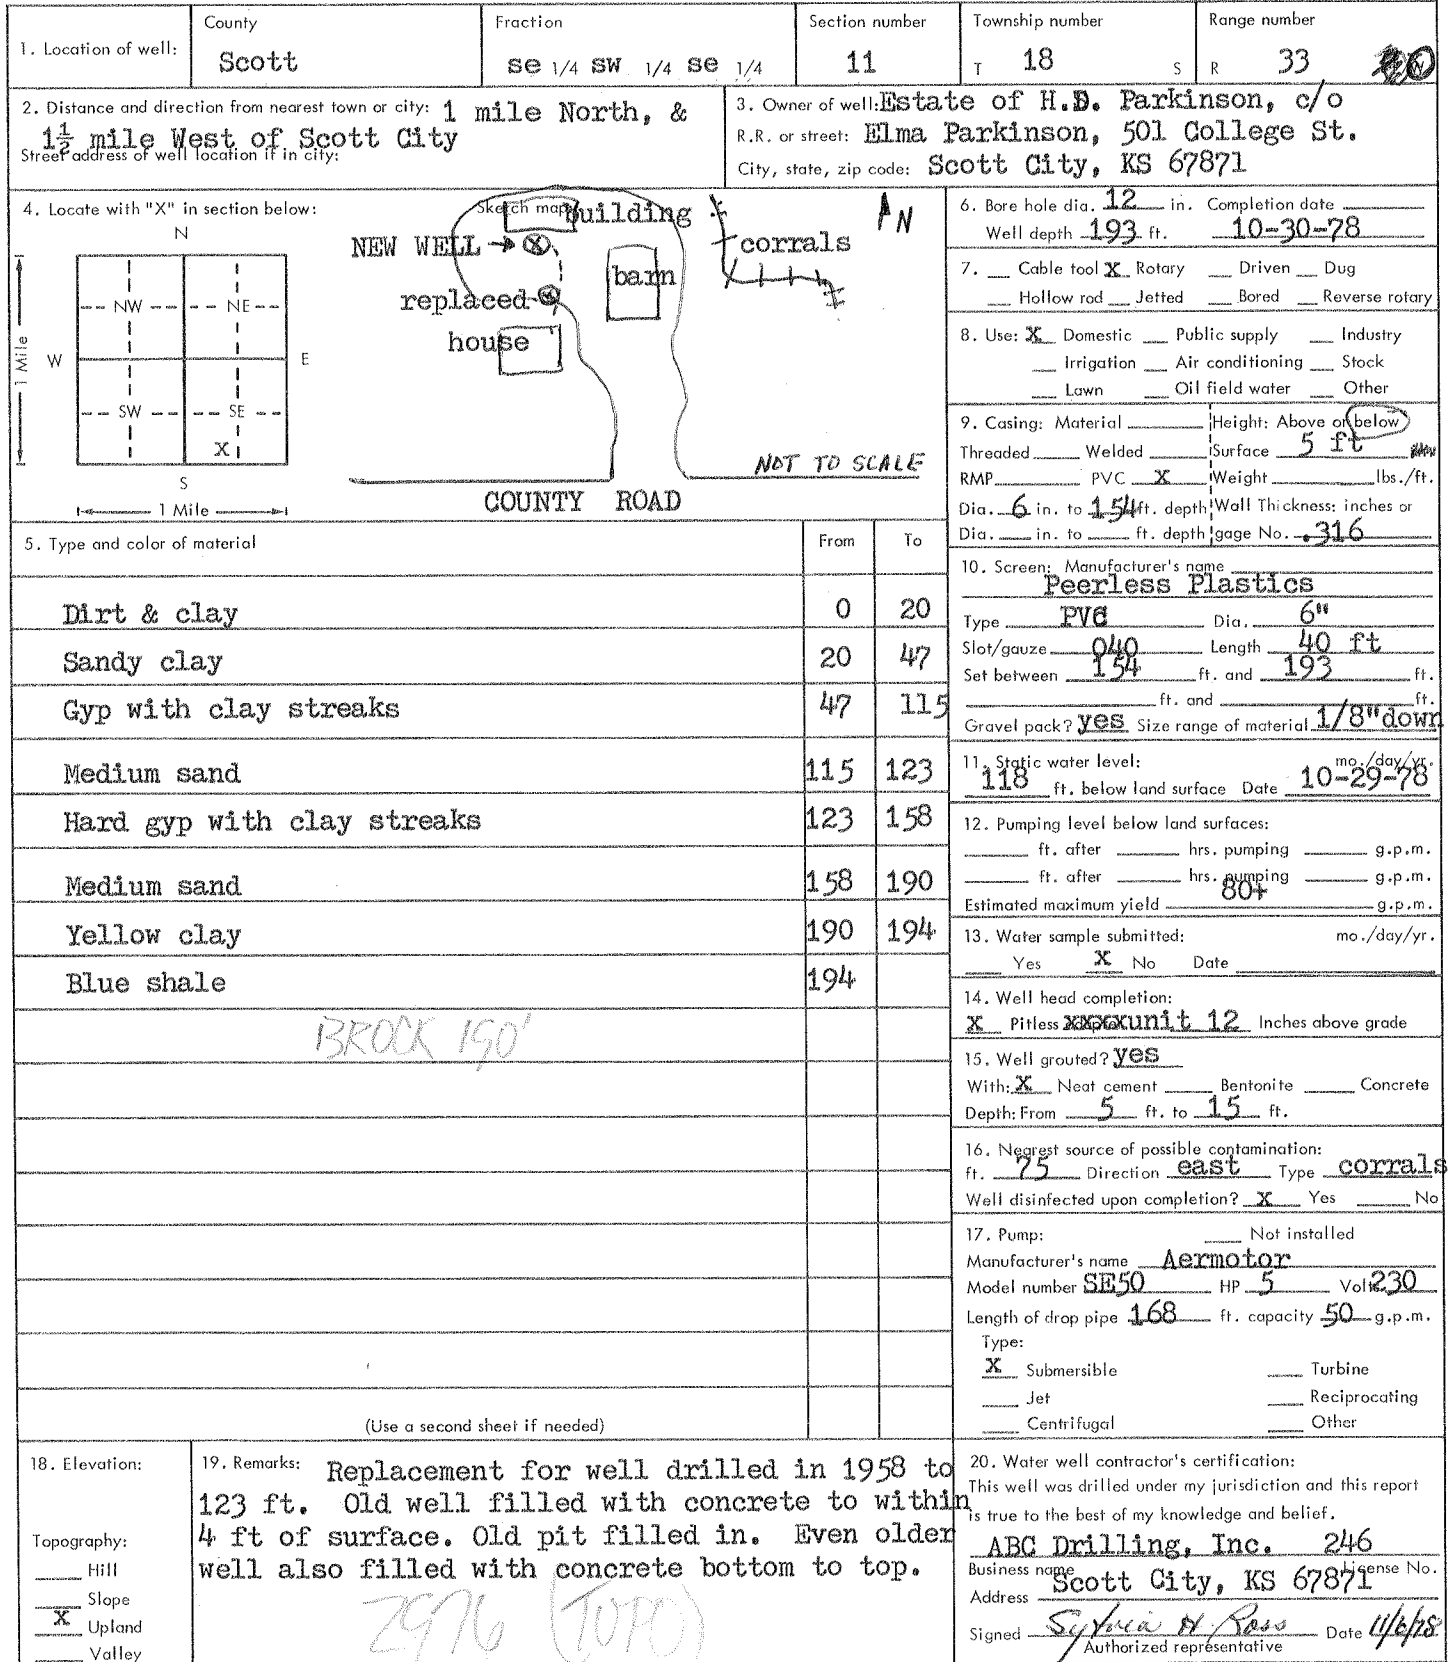 1. Location of well:
County
Scott
Fraction
se 1/4 sw 1/4 se 1/4
Section number
11
Township number
T 18 S
Range number
R 33
2. Distance and direction from nearest town or city: 1 mile North, &
1½ mile West of Scott City
Street address of well location if in city:
3. Owner of well: Estate of H.D. Parkinson, c/o
R.R. or street: Elma Parkinson, 501 College St.
City, state, zip code: Scott City, KS 67871
4. Locate with "X" in section below:
N
NW NE
W E
SW SE
X
S
1 Mile
1 Mile
Sketch map:
building
NEW WELL
replaced
house
barn
corrals
N
NOT TO SCALE
COUNTY ROAD
5. Type and color of material From To
Dirt & clay 0 20
Sandy clay 20 47
Gyp with clay streaks 47 115
Medium sand 115 123
Hard gyp with clay streaks 123 158
Medium sand 158 190
Yellow clay 190 194
Blue shale 194
BROCK 190'
(Use a second sheet if needed)
6. Bore hole dia. 12 in. Completion date
Well depth 193 ft. 10-30-78
7. Cable tool X Rotary Driven Dug
Hollow rod Jetted Bored Reverse rotary
8. Use: X Domestic Public supply Industry
Irrigation Air conditioning Stock
Lawn Oil field water Other
9. Casing: Material Height: Above or below
Threaded Welded Surface 5 ft
RMP PVC X Weight lbs./ft.
Dia. 6 in. to 154 ft. depth Wall Thickness: inches or
Dia. in. to ft. depth gage No. .316
10. Screen: Manufacturer's name
Peerless Plastics
Type PVC Dia. 6"
Slot/gauze 040 Length 40 ft
Set between 154 ft. and 193 ft.
ft. and ft.
Gravel pack? yes Size range of material 1/8"down
11. Static water level: mo./day/yr.
118 ft. below land surface Date 10-29-78
12. Pumping level below land surfaces:
ft. after hrs. pumping g.p.m.
ft. after hrs. pumping g.p.m.
Estimated maximum yield 80+ g.p.m.
13. Water sample submitted: mo./day/yr.
Yes X No Date
14. Well head completion:
X Pitless xxxxxunit 12 Inches above grade
15. Well grouted? yes
With: X Neat cement Bentonite Concrete
Depth: From 5 ft. to 15 ft.
16. Nearest source of possible contamination:
ft. 75 Direction east Type corrals
Well disinfected upon completion? X Yes No
17. Pump: Not installed
Manufacturer's name Aermotor
Model number SE50 HP 5 Volts 230
Length of drop pipe 168 ft. capacity 50 g.p.m.
Type:
X Submersible Turbine
Jet Reciprocating
Centrifugal Other
18. Elevation:
Topography:
Hill
Slope
X Upland
Valley
19. Remarks: Replacement for well drilled in 1958 to
123 ft. Old well filled with concrete to within
4 ft of surface. Old pit filled in. Even older
well also filled with concrete bottom to top.
2976 (TOPO)
20. Water well contractor's certification:
This well was drilled under my jurisdiction and this report
is true to the best of my knowledge and belief.
ABC Drilling, Inc. 246
Business name License No.
Address Scott City, KS 67871
Signed Sylvia H. Ross Date 11/6/78
Authorized representative